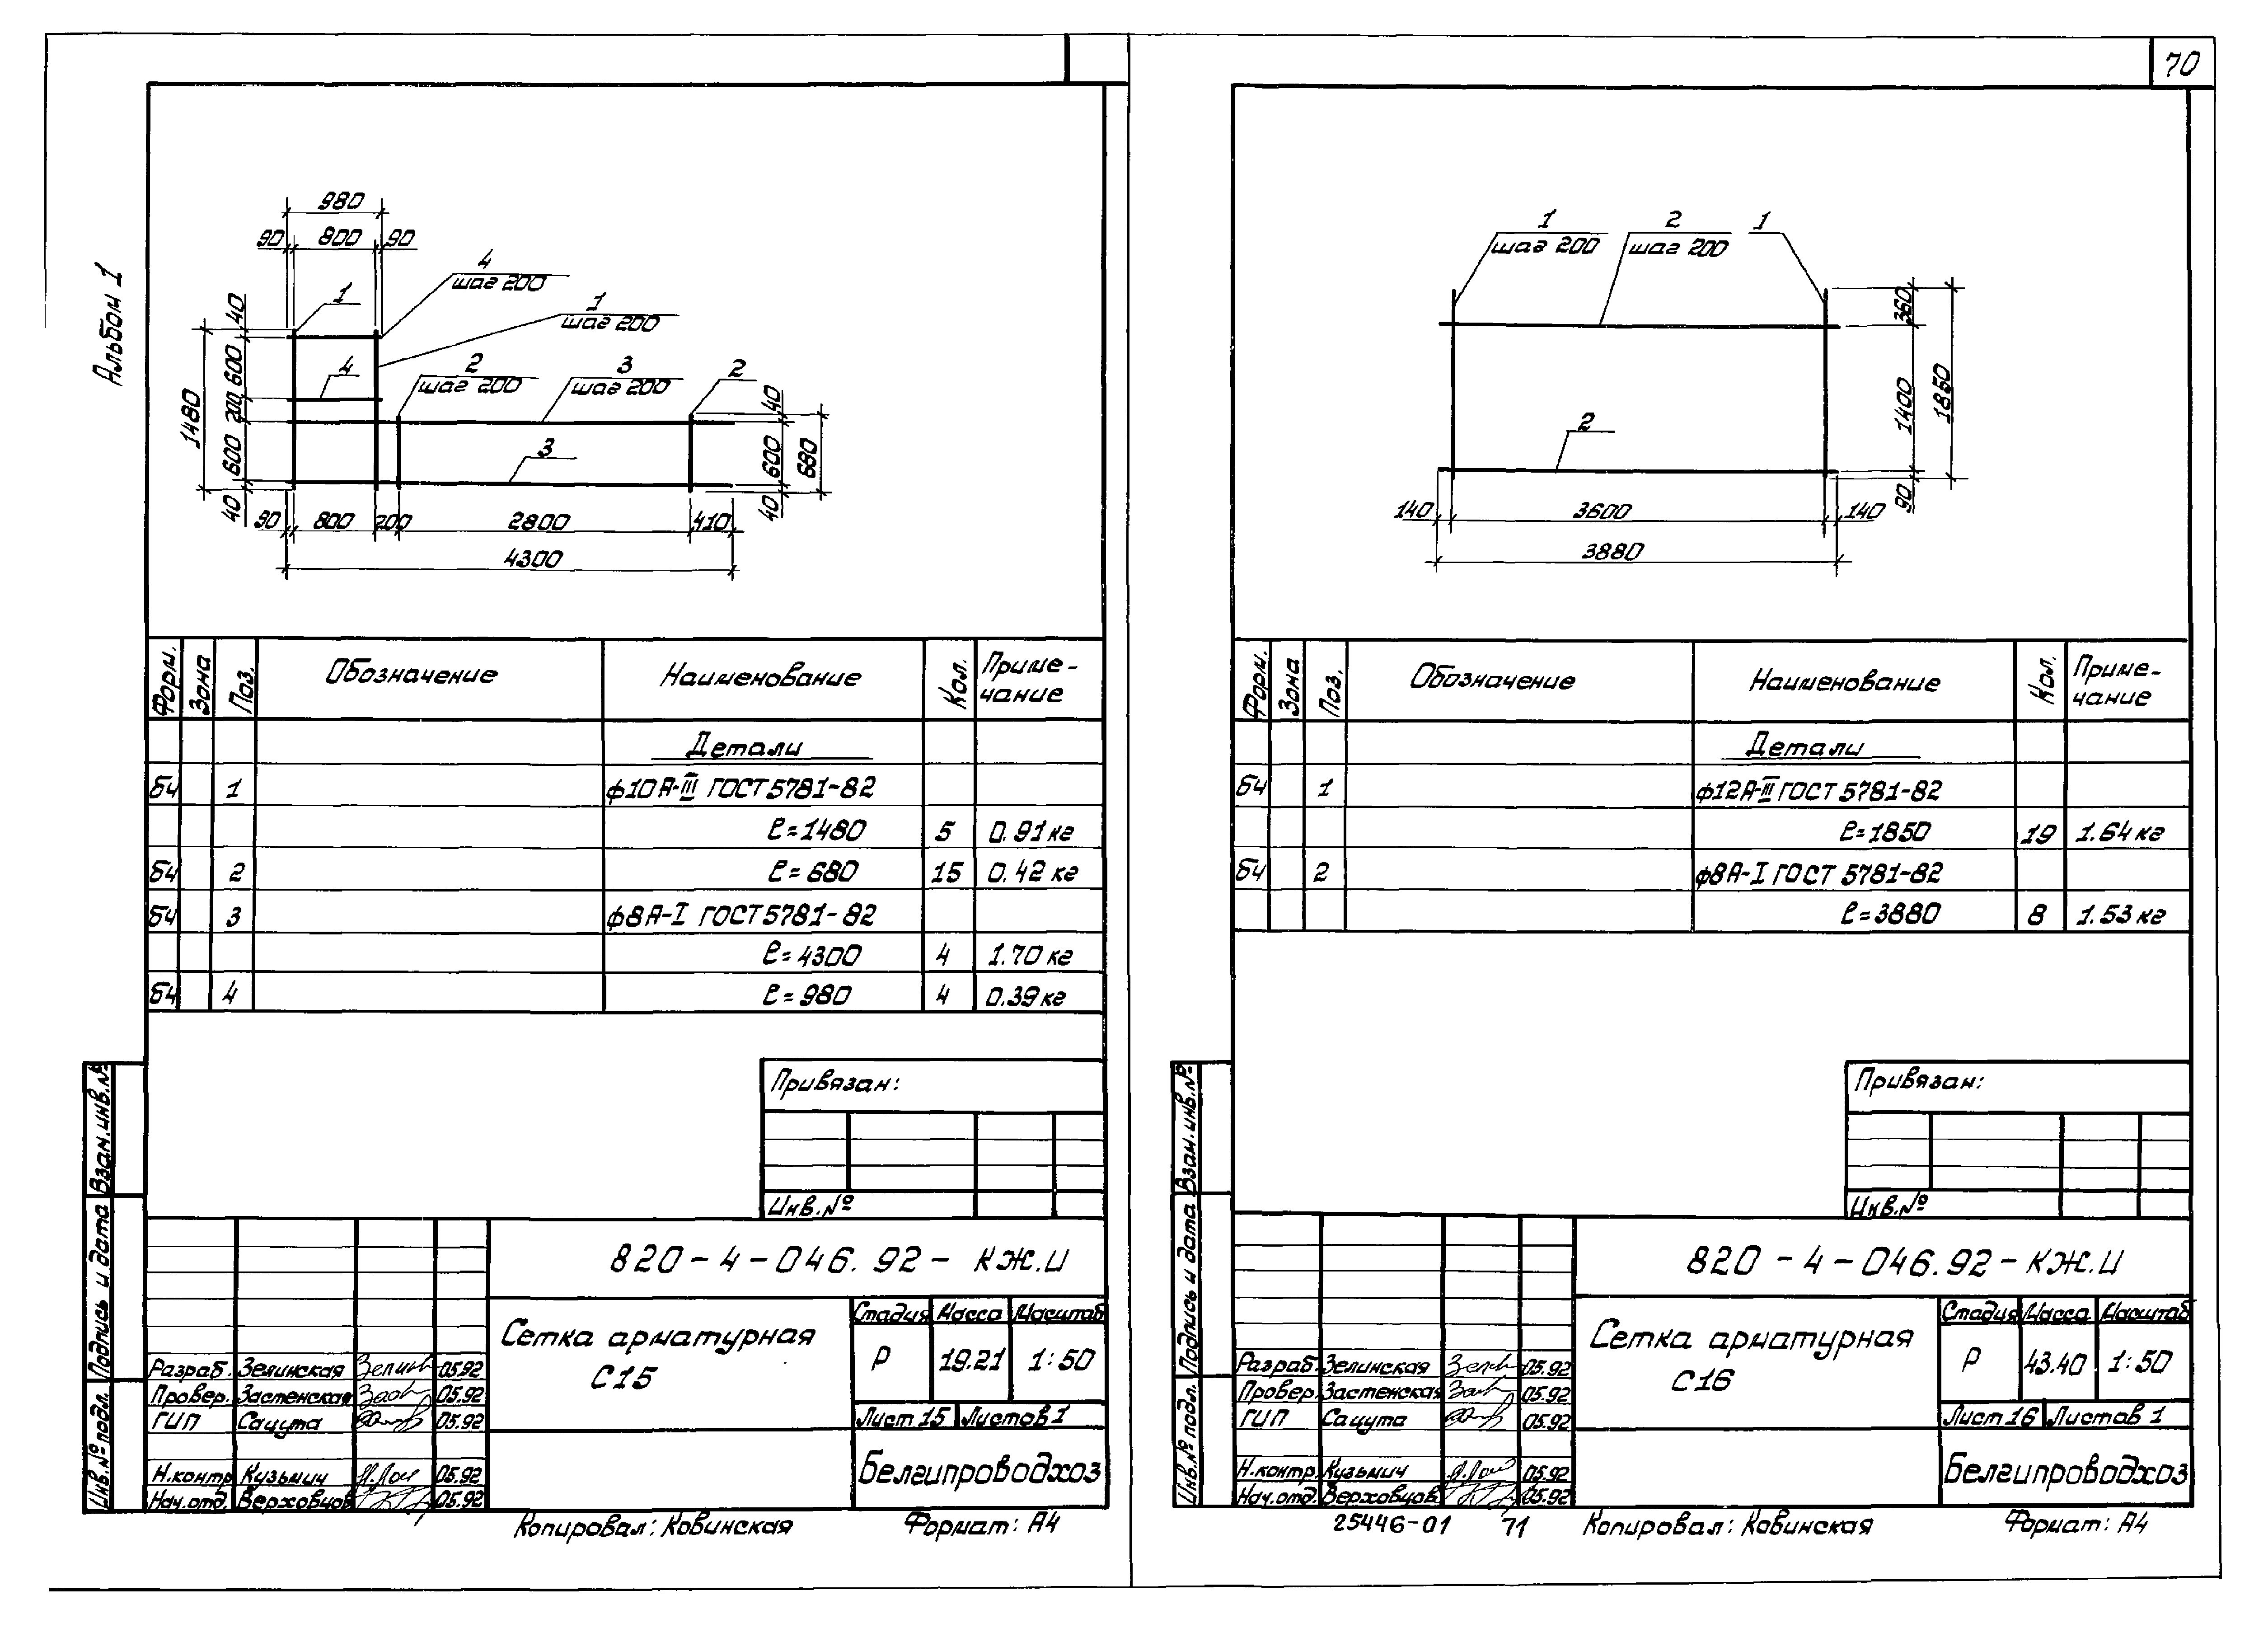 70
Альбом 1
980
90 800 90
4
шаг 200
1
1
шаг 200
40
600
200
600
40
1480
4
2
шаг 200
3
шаг 200
2
3
40
600
40
680
90 800 200 2800 410
4300
Форм. Зона Поз. Обозначение Наименование Кол. Приме-
чание
Детали
БЧ 1 ф10А-III ГОСТ 5781-82
ℓ=1480 5 0.91 кг
БЧ 2 ℓ=680 15 0.42 кг
БЧ 3 ф8А-I ГОСТ 5781-82
ℓ=4300 4 1.70 кг
БЧ 4 ℓ=980 4 0.39 кг
Привязан:
Инв.№
Взам.инв.№
Подпись и дата
Инв.№ подл.
820-4-046.92- КЖ.И
Сетка арматурная
С15
Стадия Масса Масштаб
Р 19.21 1:50
Лист 15 Листов 1
Белгипроводхоз
Разраб. Зелинская 05.92
Провер. Застенская 05.92
ГИП Сацута 05.92
Н.контр Кузьмич 05.92
Нач.отд. Верховцов 05.92
Копировал: Ковинская Формат: А4
1
шаг 200
2
шаг 200
1
2
360
1400
90
1850
140 3600 140
3880
Форм. Зона Поз. Обозначение Наименование Кол. Приме-
чание
Детали
БЧ 1 ф12А-III ГОСТ 5781-82
ℓ=1850 19 1.64 кг
БЧ 2 ф8А-I ГОСТ 5781-82
ℓ=3880 8 1.53 кг
Привязан:
Инв.№
Взам.инв.№
Подпись и дата
Инв.№ подл.
820-4-046.92-КЖ.И
Сетка арматурная
С16
Стадия Масса Масштаб
Р 43.40 1:50
Лист 16 Листов 1
Белгипроводхоз
Разраб. Зелинская 05.92
Провер. Застенская 05.92
ГИП Сацута 05.92
Н.контр. Кузьмич 05.92
Нач.отд. Верховцов 05.92
25446-01 71 Копировал: Ковинская Формат: А4